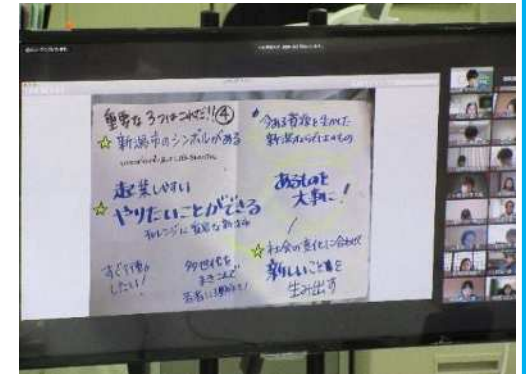 重要な3つはこれだ!!④
☆新潟市のシンボルがある
起業しやすい
☆やりたいことができる
チャレンジに寛容な新潟市
すぐ行動
したい!
多世代を
まきこんで
今ある資源を生かした
新潟ならではのもの
あるものを
大事に!
☆社会の変化に合わせて
新しいことを
生み出す